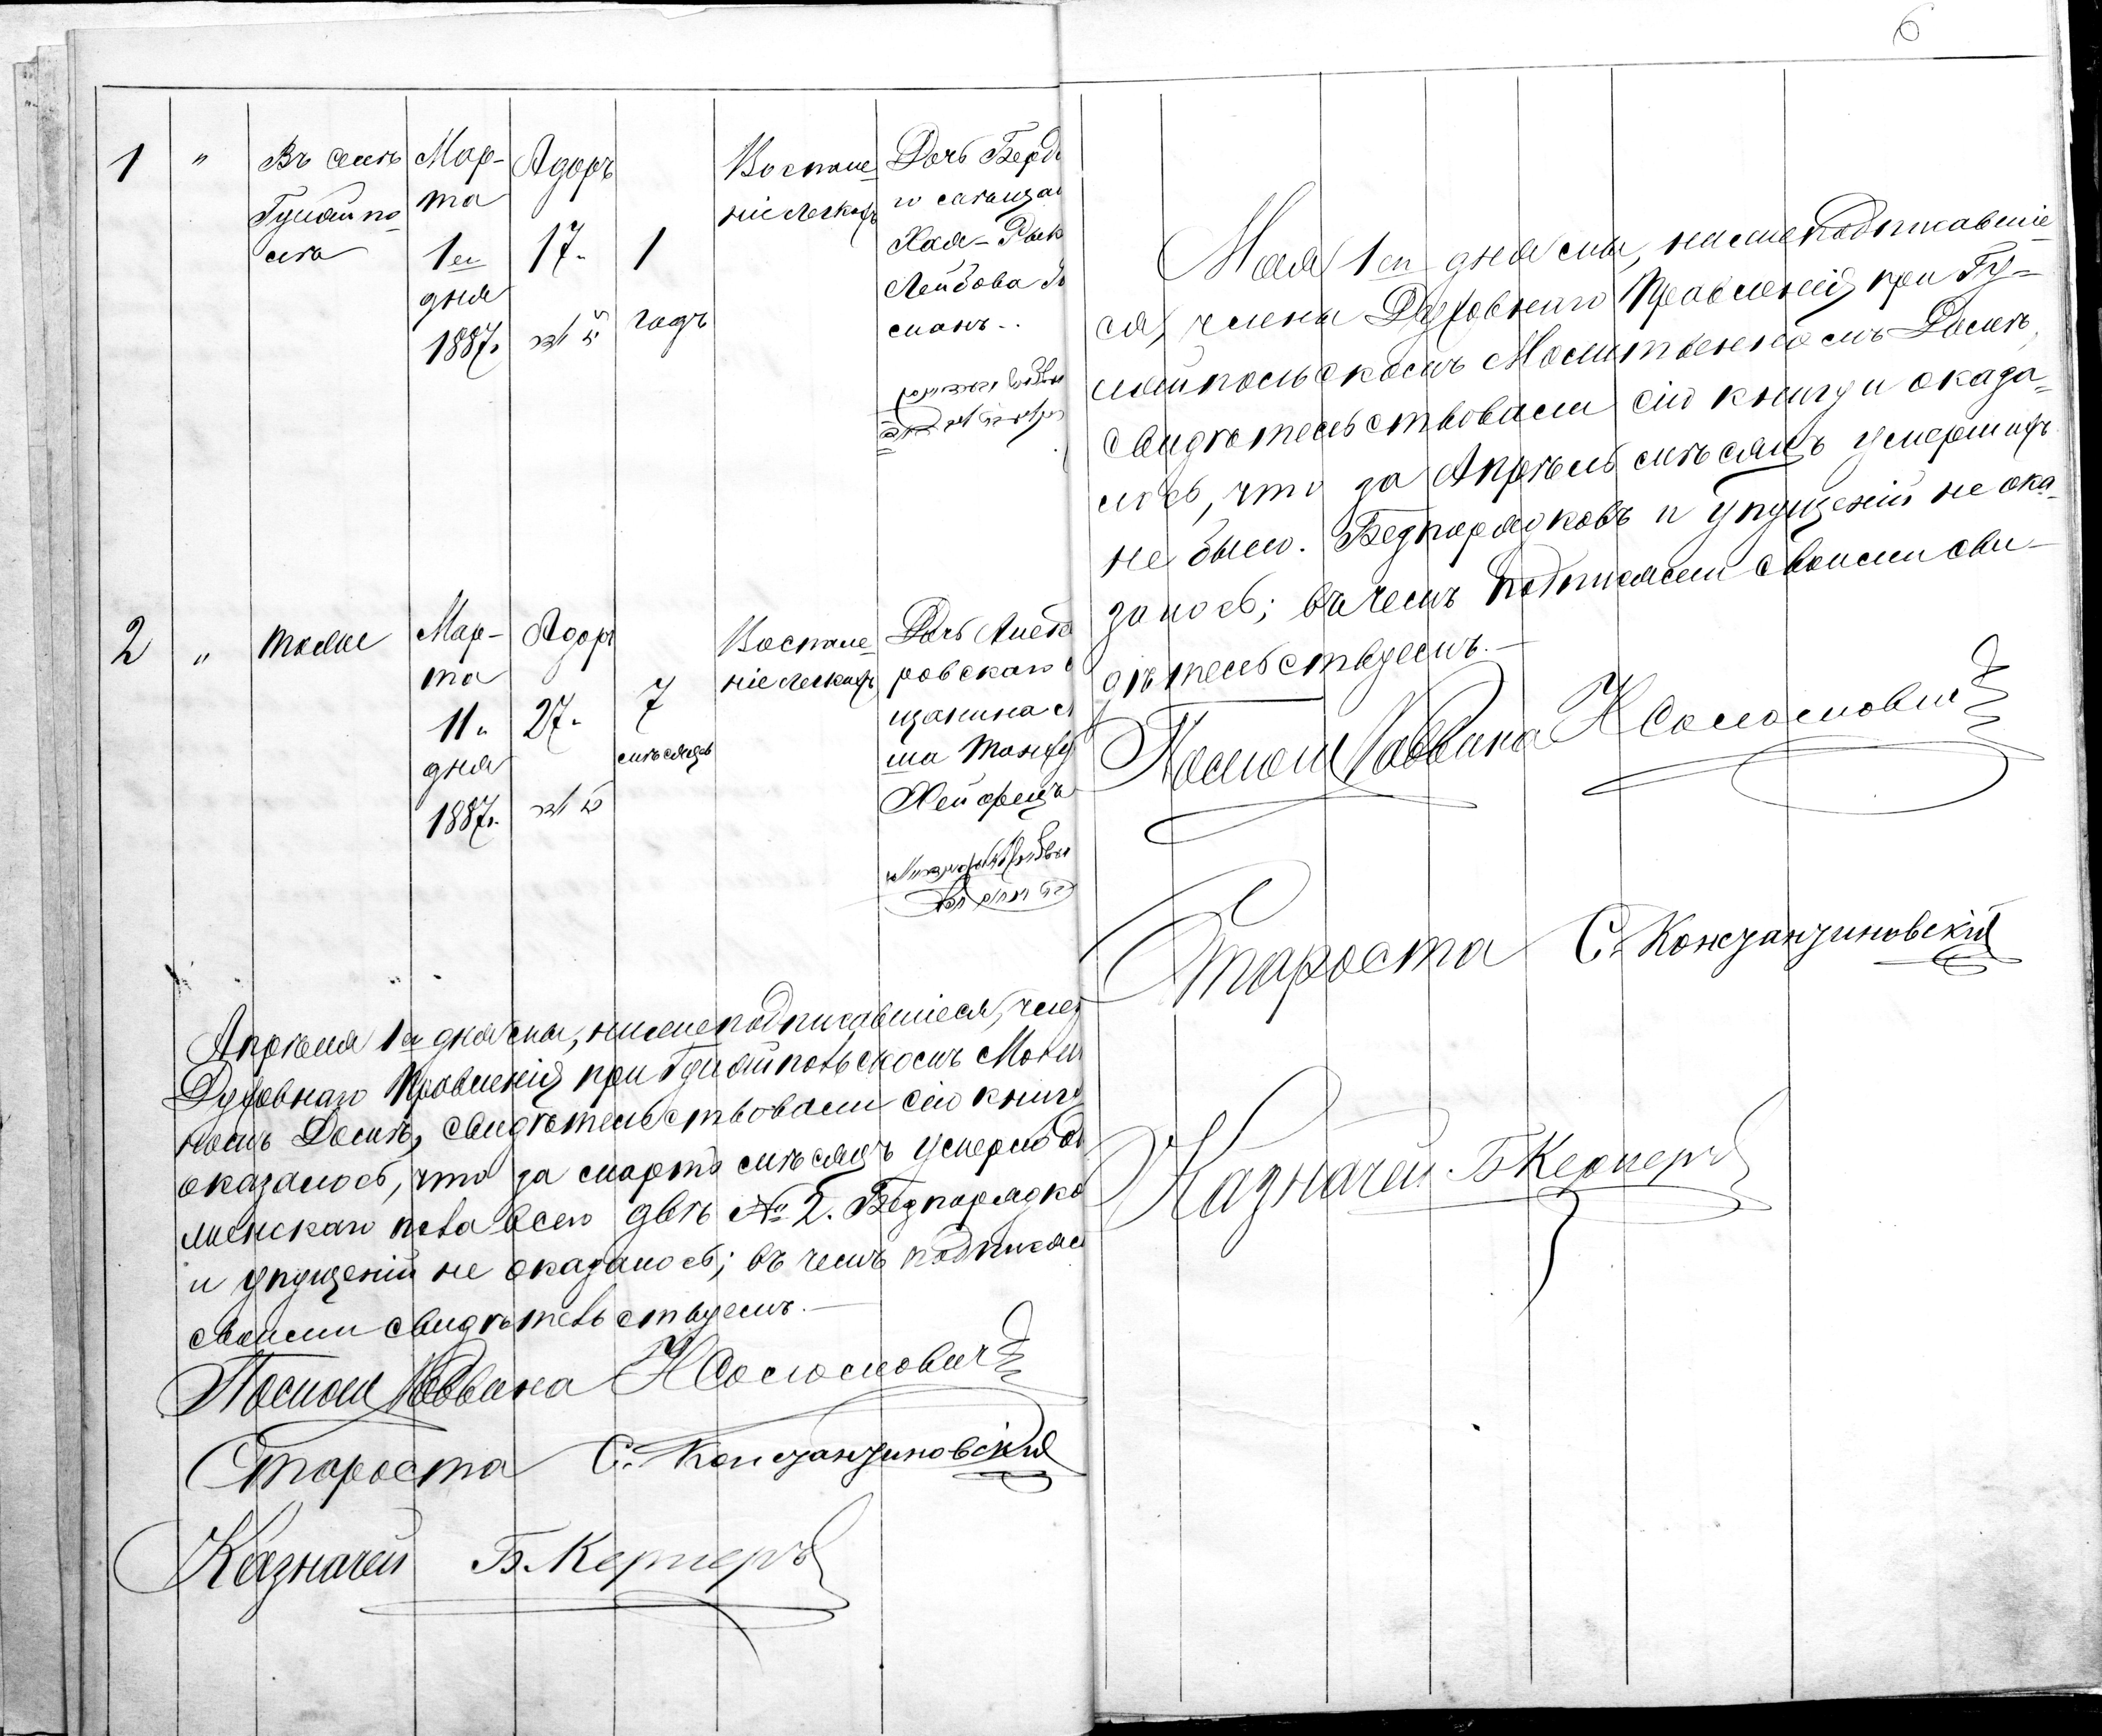 6
1 " Въ селѣ Гуляйпо-
лѣ
Мар-
та
1го
дня
1887.
Адоръ
17.
1
годъ
Воспале-
ніе легкихъ
Дочь Берд
Хая-Рык
Лейбова
2 " тоже
Мар-
та
11.
дня
1887.
Адоръ
27.
7
мѣсяцевъ
Воспале-
ніе легкихъ
Дочь Алекс
ровскаго
щанина
Хейфецъ
Апрѣля 1го дня мы, нижеподписавшіеся, член
Духовнаго Правленія при Гуляйпольскомъ Молит
номъ Домѣ, свидѣтельствовали сію книгу
оказалось, что за мартъ мѣсяцъ умерло
женскаго пола всего двѣ № 2. Безпорядко
и упущеній не оказалось; въ чемъ подписям
своими свидѣтельствуемъ.—
Помош Раввина Н Соломоновичъ
Староста С. Констанзиновскій
Казначей Б. Кернеръ
Мая 1го дня мы, нижеподписавшіе-
ся, члены Духовнаго Правленія при Гу-
ляйпольскомъ Молитвенномъ Домѣ,
свидѣтельствовали сію книгу и оказа-
лось, что за Апрѣль мѣсяцъ умершихъ
не было. Безпорядковъ и упущеній не ока-
залось; въ чемъ подписями своими сви-
дѣтельствуемъ.—
Помош Раввина Н Соломоновичъ
Староста С. Констанзиновскій
Казначей Б Кернеръ